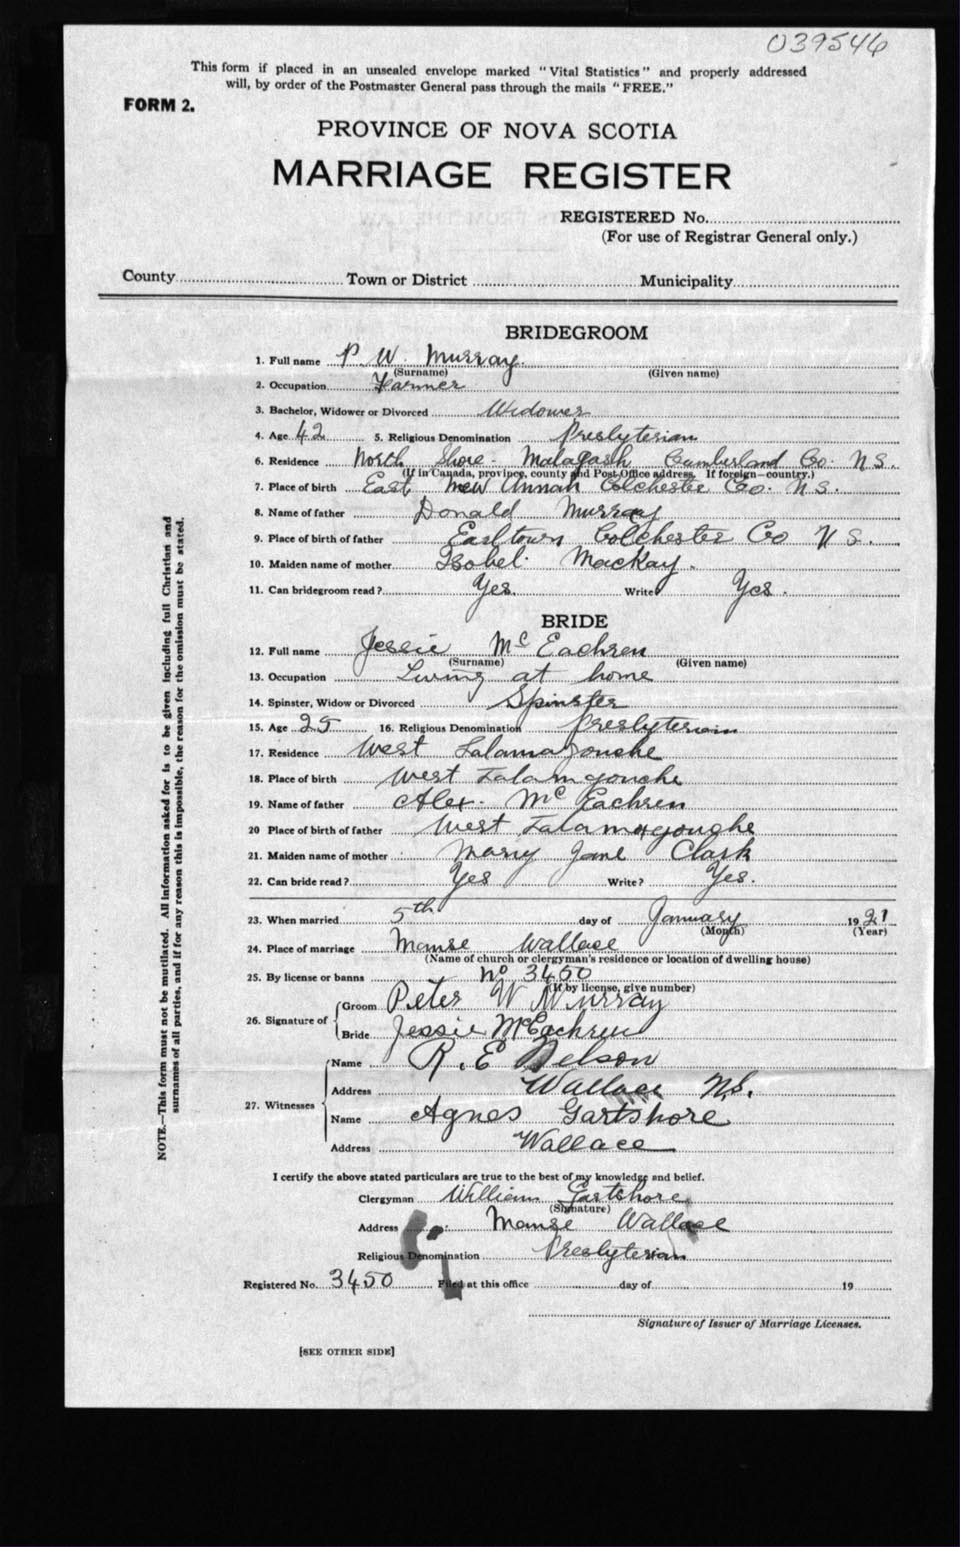 039546
This form if placed in an unsealed envelope marked "Vital Statistics" and properly addressed
will, by order of the Postmaster General pass through the mails "FREE."
FORM 2.
PROVINCE OF NOVA SCOTIA
MARRIAGE REGISTER
REGISTERED No.
(For use of Registrar General only.)
County Town or District Municipality
BRIDEGROOM
1. Full name P. W. Murray
(Surname) (Given name)
2. Occupation Farmer
3. Bachelor, Widower or Divorced Widower
4. Age 42 5. Religious Denomination Presbyterian
6. Residence North Shore - Malagash Cumberland Co. N S.
(If in Canada, province, county and Post Office address. If foreign—country.)
7. Place of birth East New Annan Colchester Co. N S.
8. Name of father Donald Murray
9. Place of birth of father Earltown Colchester Co N S.
10. Maiden name of mother Isobel MacKay.
11. Can bridegroom read? Yes. Write Yes.
BRIDE
12. Full name Jessie Mc Eachren
(Surname) (Given name)
13. Occupation Living at home
14. Spinster, Widow or Divorced Spinster
15. Age 25 16. Religious Denomination Presbyterian
17. Residence West Tatamagouche
18. Place of birth West Tatamgouche
19. Name of father Alex. Mc Eachren
20 Place of birth of father West Tatamagouche
21. Maiden name of mother Mary Jane Clark
22. Can bride read? Yes Write? Yes.
23. When married 5th day of January 1921
(Month) (Year)
24. Place of marriage Manse Wallace
(Name of church or clergyman's residence or location of dwelling house)
25. By license or banns No 3450
(If by license, give number)
26. Signature of Groom Peter W Murray
Bride Jessie McEachren
27. Witnesses Name R. E Nelson
Address Wallace N.S.
Name Agnes Gartshore
Address Wallace
I certify the above stated particulars are true to the best of my knowledge and belief.
Clergyman William Gartshore
(Signature)
Address Manse Wallace
Religious Denomination Presbyterian
Registered No. 3450 Filed at this office day of 19
Signature of Issuer of Marriage Licenses.
[SEE OTHER SIDE]
NOTE.—This form must not be mutilated. All information asked for is to be given including full Christian and
surnames of all parties, and if for any reason this is impossible, the reason for the omission must be stated.